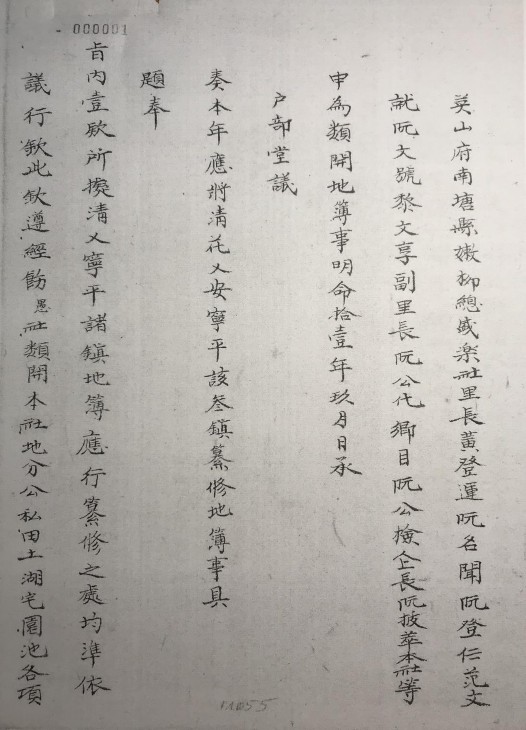 000001
英山府南塘縣嫩柳總盛楽社里長黃登運阮名聞阮登仁范文
就阮文號黎文享副里長阮公代鄉目阮公檢仝長阮披萃本社等
申為類開地簿事明命拾壹年玖月日承
户部堂議
奏本年應將清花乂安寧平該叁鎮纂修地簿事具
題奉
旨内壹欵所擬清乂寧平諸鎮地簿應行纂修之處均準依
議行欽此欽遵經飭愚社類開本社地分公私田土湖宅園池各項
55